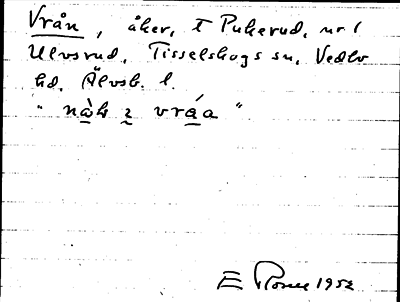 Vrån, åker, t Pukerud, nr 1
Ulvsrud, Tisselskogs sn, Vedbo
hd, Älvsb. l.
"nàk i vráa"
E Rosell 1952